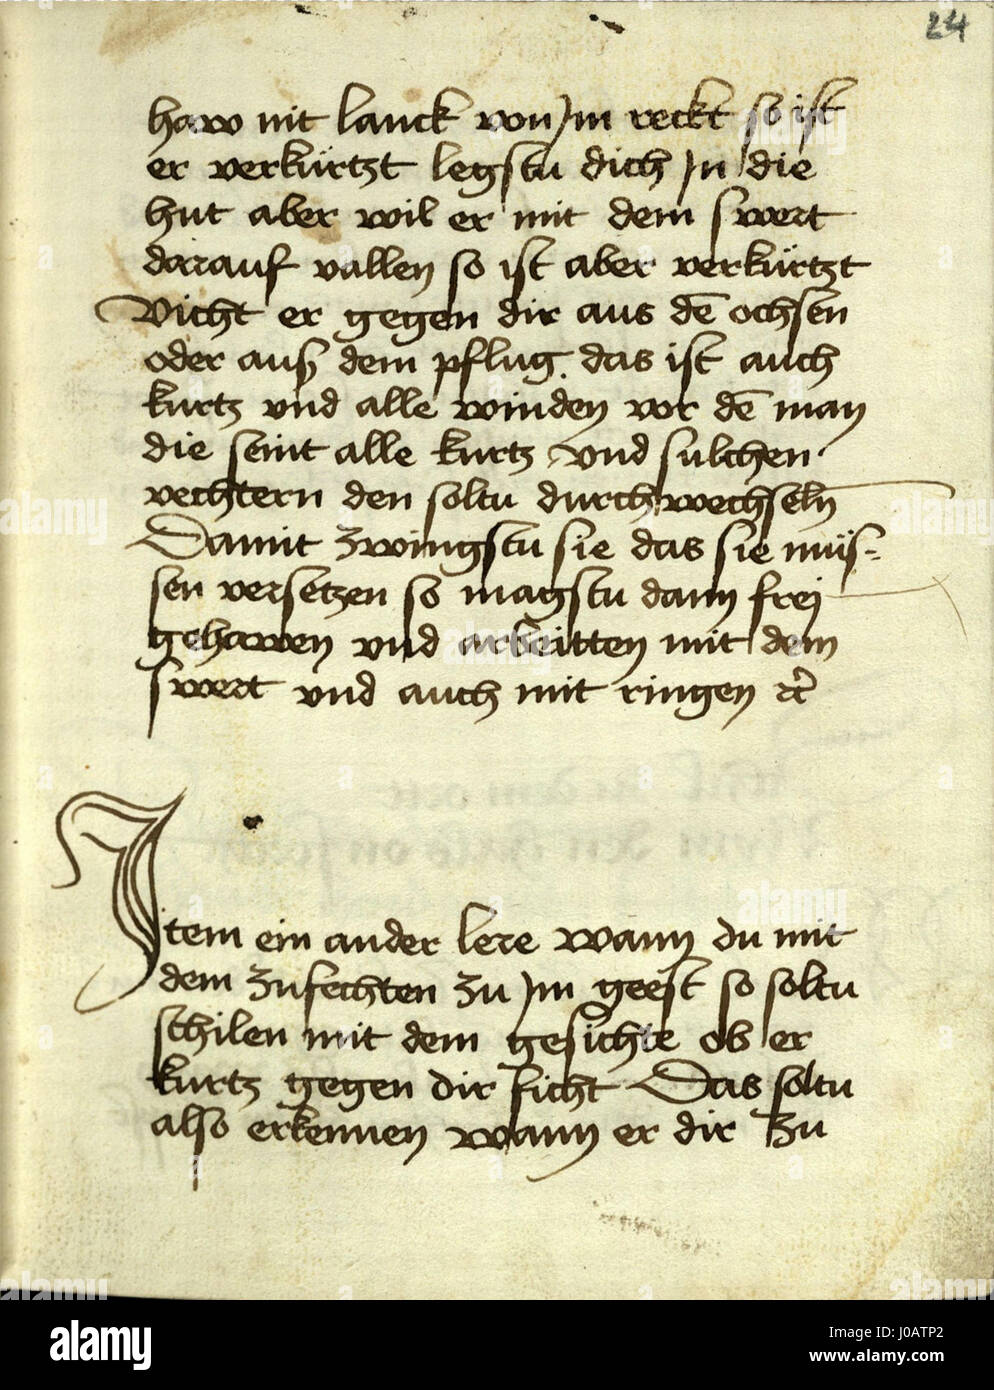 24
haw nit lanck von Jm reckt so ist
er verkürtzt legstu dich Jn die
hut aber wil er mit dem swert
darauf vallen so ist aber verkürtzt
Vicht er gegen dir aus dē ochsen
oder auß dem pflug. das ist auch
kurtz vnd alle winden vor dē man
die seint alle kurtz vnd sulchen
vechtern den soltu durchwechseln
Damit zwingstu sie das sie müs-
sen versetzen so magstu dann frej
gehawen vnd arbeitten mit dem
swert vnd auch mit ringen ꝛc
Jtem ein ander lere wann du mit
dem zufechten zu Jm geest so soltu
schilen mit dem gesichte ob er
kurtz gegen dir ficht Das soltu
also erkennen wann er dir zu
alamy
Image ID: J0ATP2
www.alamy.com